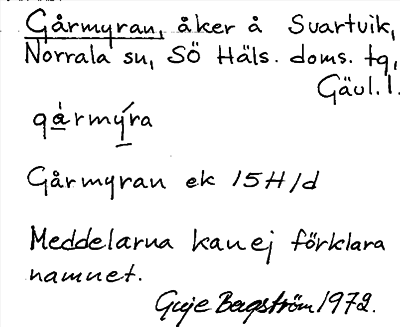 Gårmyran, åker å Svartvik,
Norrala sn, SÖ Häls. doms. tg,
Gävl. l.
gårmýra
Gårmyran ek 15H/d
Meddelarna kan ej förklara
namnet.
Guje Bergström 1972.